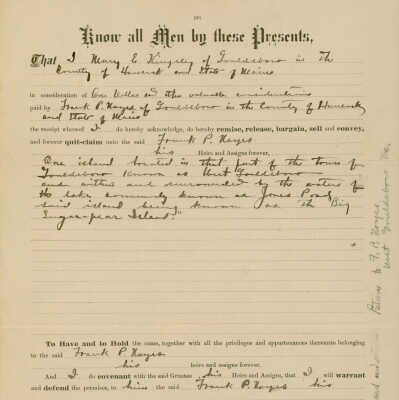 Know all Men by these Presents,
That I Mary E Kingsley of Gouldsboro in the
County of Hancock and State of Maine
in consideration of One dollar and other valuable considerations
paid by Frank P. Noyes of Gouldsboro in the County of Hancock
and State of Maine
the receipt whereof I do hereby acknowledge, do hereby remise, release, bargain, sell and convey,
and forever quit-claim unto the said Frank P. Noyes
his Heirs and Assigns forever,
One island located in that part of the town of
Gouldsboro known as West Gouldsboro
and within and surrounded by the waters of
the lake commonly known as Jones Pond
said island being known as the "Big
Sugar-pear Island."
To Have and to Hold the same, together with all the privileges and appurtenances thereunto belonging
to the said Frank P. Noyes
his heirs and assigns forever.
And I do covenant with the said Grantee his Heirs and Assigns, that I will warrant
and defend the premises, to him the said Frank P. Noyes his
Return to F. P. Noyes
West Gouldsboro Me.